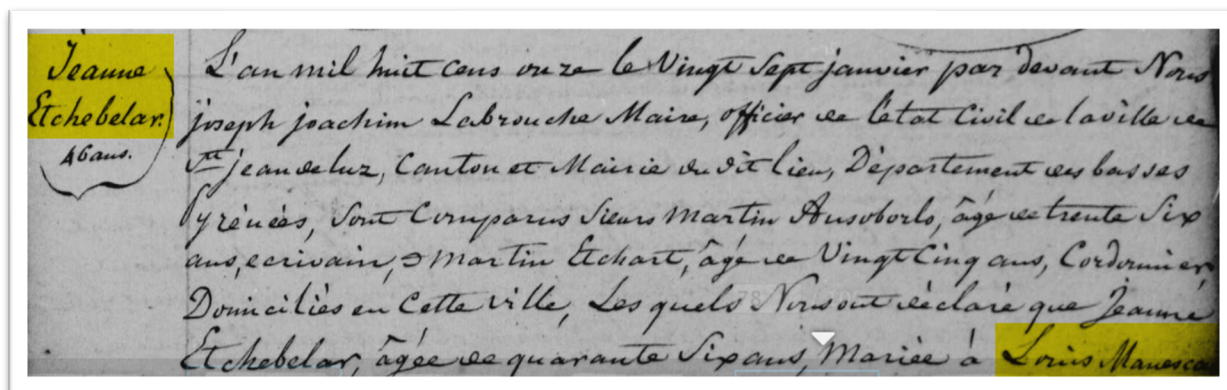 Jeanne
Etchebelar.
46 ans.
L'an mil huit cens onze le Vingt Sept janvier par devant Nous
joseph joachim Labrouche Maire, officier de l'état Civil de la ville de
St jean de luz, Canton et Mairie du dit lieu, Département des basses
Pyrénées, Sont Comparus Sieurs Martin Ansoborlo, âgé de trente Six
ans, ecrivain, & Martin Etchart, âgé de Vingt Cinq ans, Cordonnier,
Domiciliés en Cette ville, Les quels Nous ont déclaré que Jeanne
Etchebelar, âgée de quarante Six ans, Mariée à Louis Manesca